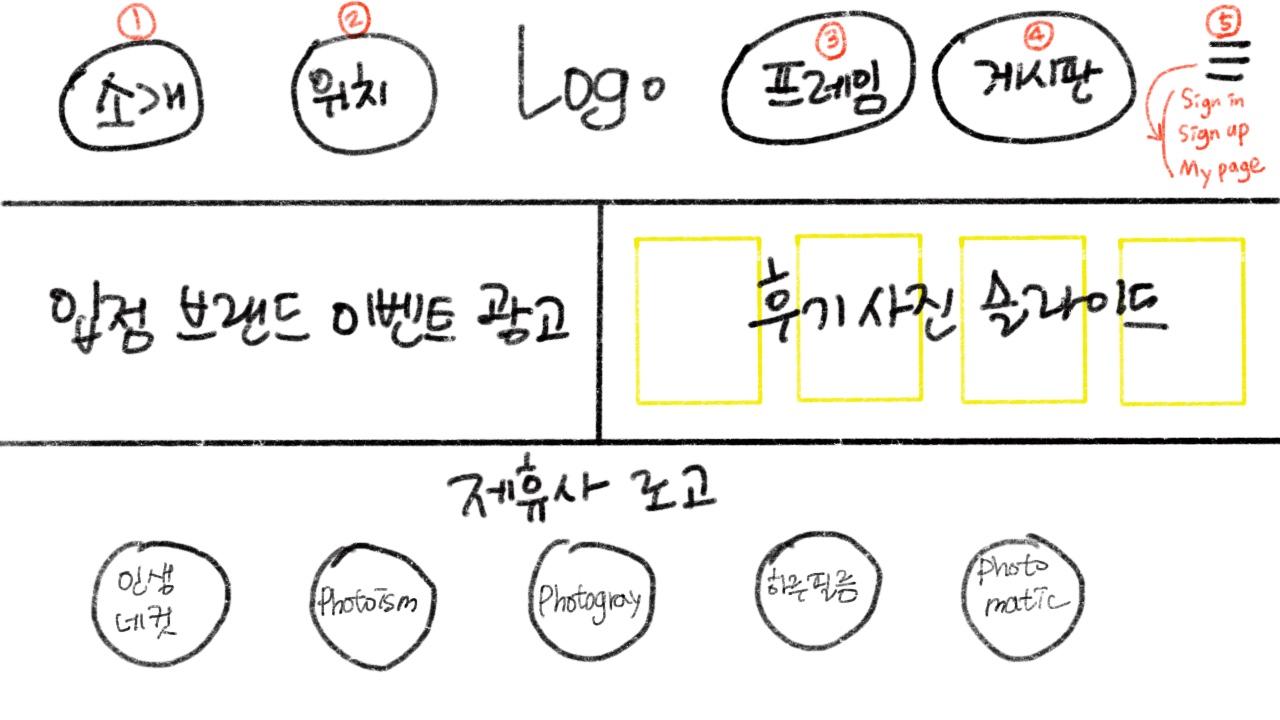 ① ② ③ ④ ⑤
소개 위치 Logo 프레임 게시판
Sign in
Sign up
My page
입점 브랜드 이벤트 광고
후기 사진 슬라이드
제휴사 로고
인생
네컷
Photoism
Photogray
하루필름
photo
matic